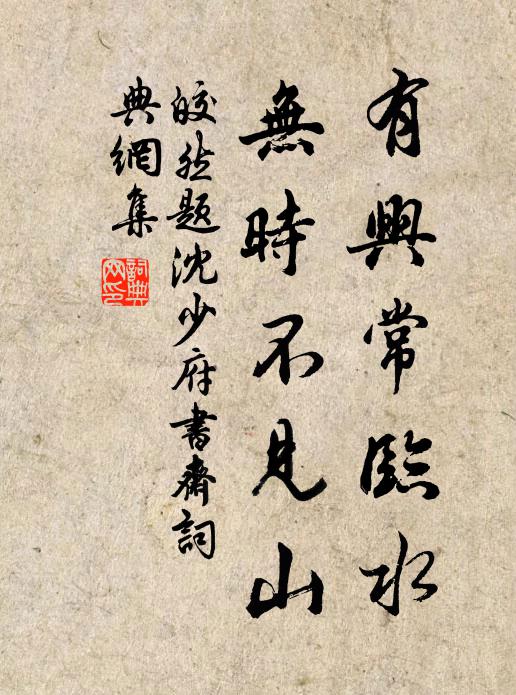 有興常臨水
無時不見山
皎然題沈少府書齋詞
典網集
詞典網印